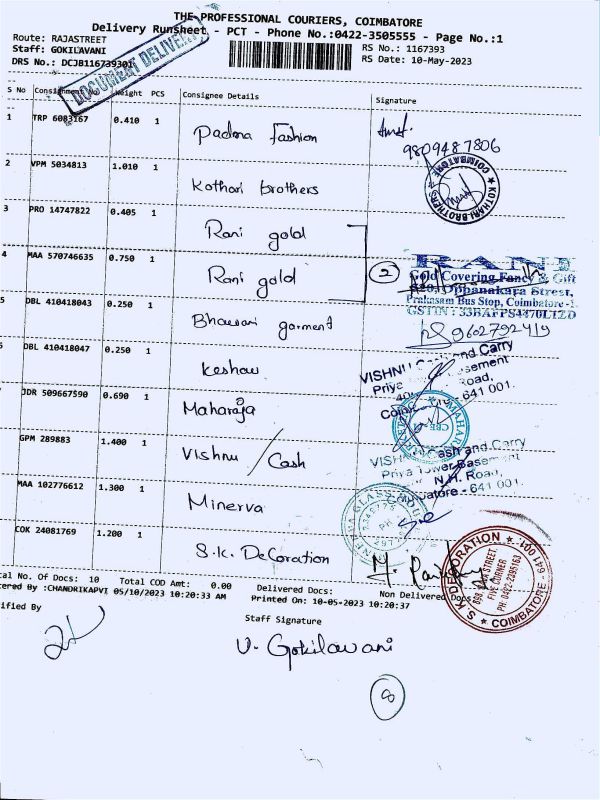 THE PROFESSIONAL COURIERS, COIMBATORE
Delivery Runsheet - PCT - Phone No.:0422-3505555 - Page No.:1
Route: RAJASTREET
Staff: GOKILAVANI RS No.: 1167393
DRS No.: DCJB116739301 RS Date: 10-May-2023
DOCUMENT DELIVERY
S No Consignment Weight PCS Consignee Details Signature
1 TRP 6083167 0.410 1 Padma fashion
9809487806
2 VPM 5034813 1.010 1 Kothari brothers
KOTHARI BROTHERS COIMBATORE
3 PRO 14747822 0.405 1 Rani gold
4 MAA 570746635 0.750 1 Rani gold 2
RANI
Gold Covering Fancy & Gift
Oppanakara Street,
Prakasam Bus Stop, Coimbatore -1.
5 DBL 410418043 0.250 1 Bhawani garment
9602792419
DBL 410418047 0.250 1 Keshav
VISHNU Cash and Carry
Road,
641 001.
JDR 509667590 0.690 1 Maharaja
MAHARAJA
CBE
GPM 289883 1.400 1 Vishnu / Cash
VISHNU Cash and Carry
Priya Tower Basement
N.H. Road,
Coimbatore - 641 001.
MAA 102776612 1.300 1 Minerva
COK 24081769 1.200 1 S.k. Decoration
S K DECORATION ★ COIMBATORE - 641 001. ★
STREET
FIVE CORNER
PH: 0422-2395163
tal No. Of Docs: 10 Total COD Amt: 0.00 Delivered Docs: Non Delivered Docs
ered By :CHANDRIKAPVI 05/10/2023 10:20:33 AM Printed On: 10-05-2023 10:20:37
ified By Staff Signature
V. Gokilavani
8